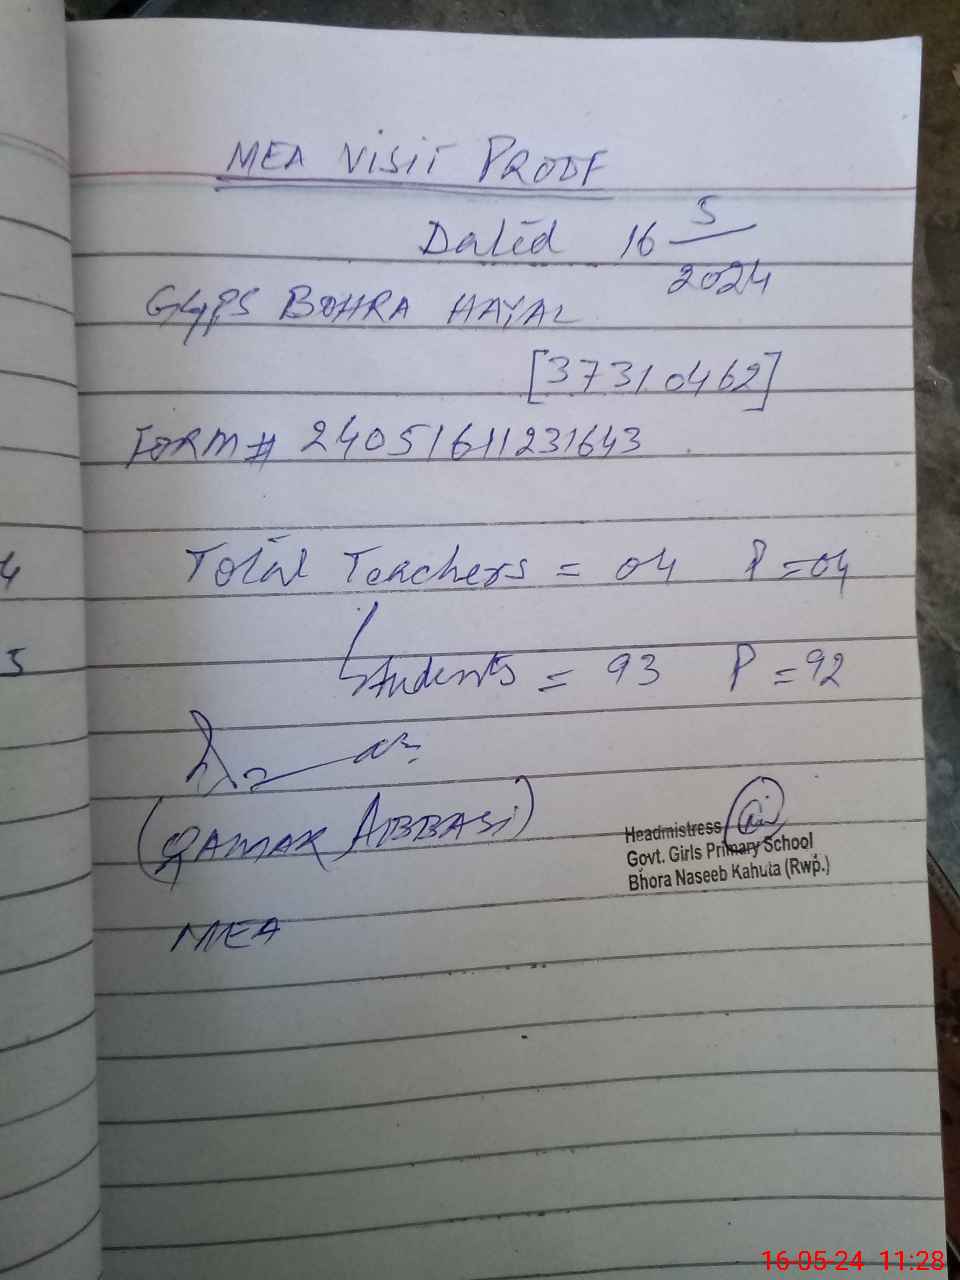 MEA VISIT PROOF
Dated 16 5/2024
GGPS BOHRA HAYAL
[37310462]
FORM # 24051611231643
4
Total Teachers = 04 P = 04
5
Students = 93 P = 92
(QAMAR ABBASI)
Headmistress
Govt. Girls Primary School
Bhora Naseeb Kahuta (Rwp.)
MEA
16-05-24 11:28